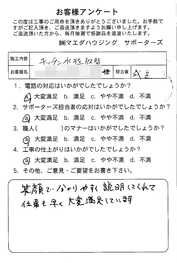 お客様アンケート
この度は工事のご用命を頂きありがとうございました。お手数で
すがご記入頂き、ご返送頂きますようお願い申し上げます。
ご返送頂いた方から、毎月抽選で感謝品を進呈いたします。
㈱マエダハウジング サポーターズ
施工内容 キッチン水栓取替
お客様名 様 担当者
1. 電話の対応はいかがでしたでしょうか？
大変満足 B 満足 C やや不満 D 不満
2. サポーターズ担当者の応対はいかがでしたでしょうか？
大変満足 B 満足 C やや不満 D 不満
3. 職人( )のマナーはいかがでしたでしょうか？
大変満足 B 満足 C やや不満 D 不満
4. 工事の仕上がりはいかがでしたでしょうか？
大変満足 B 満足 C やや不満 D 不満
5. その他、ご意見・ご要望をお書き下さい。
笑顔でわかりやすく説明してくれて
仕事も早く大変満足しています